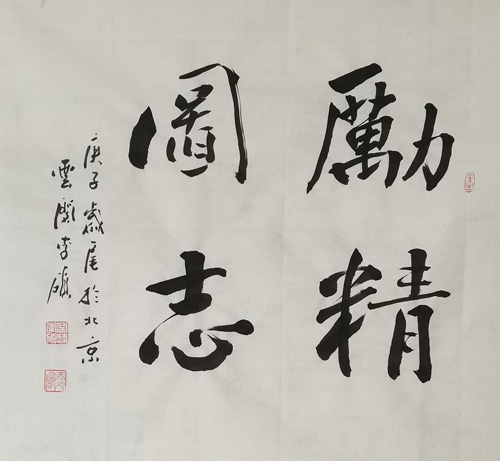 勵精
圖志
庚子歲尾於北京
雲闕李碩